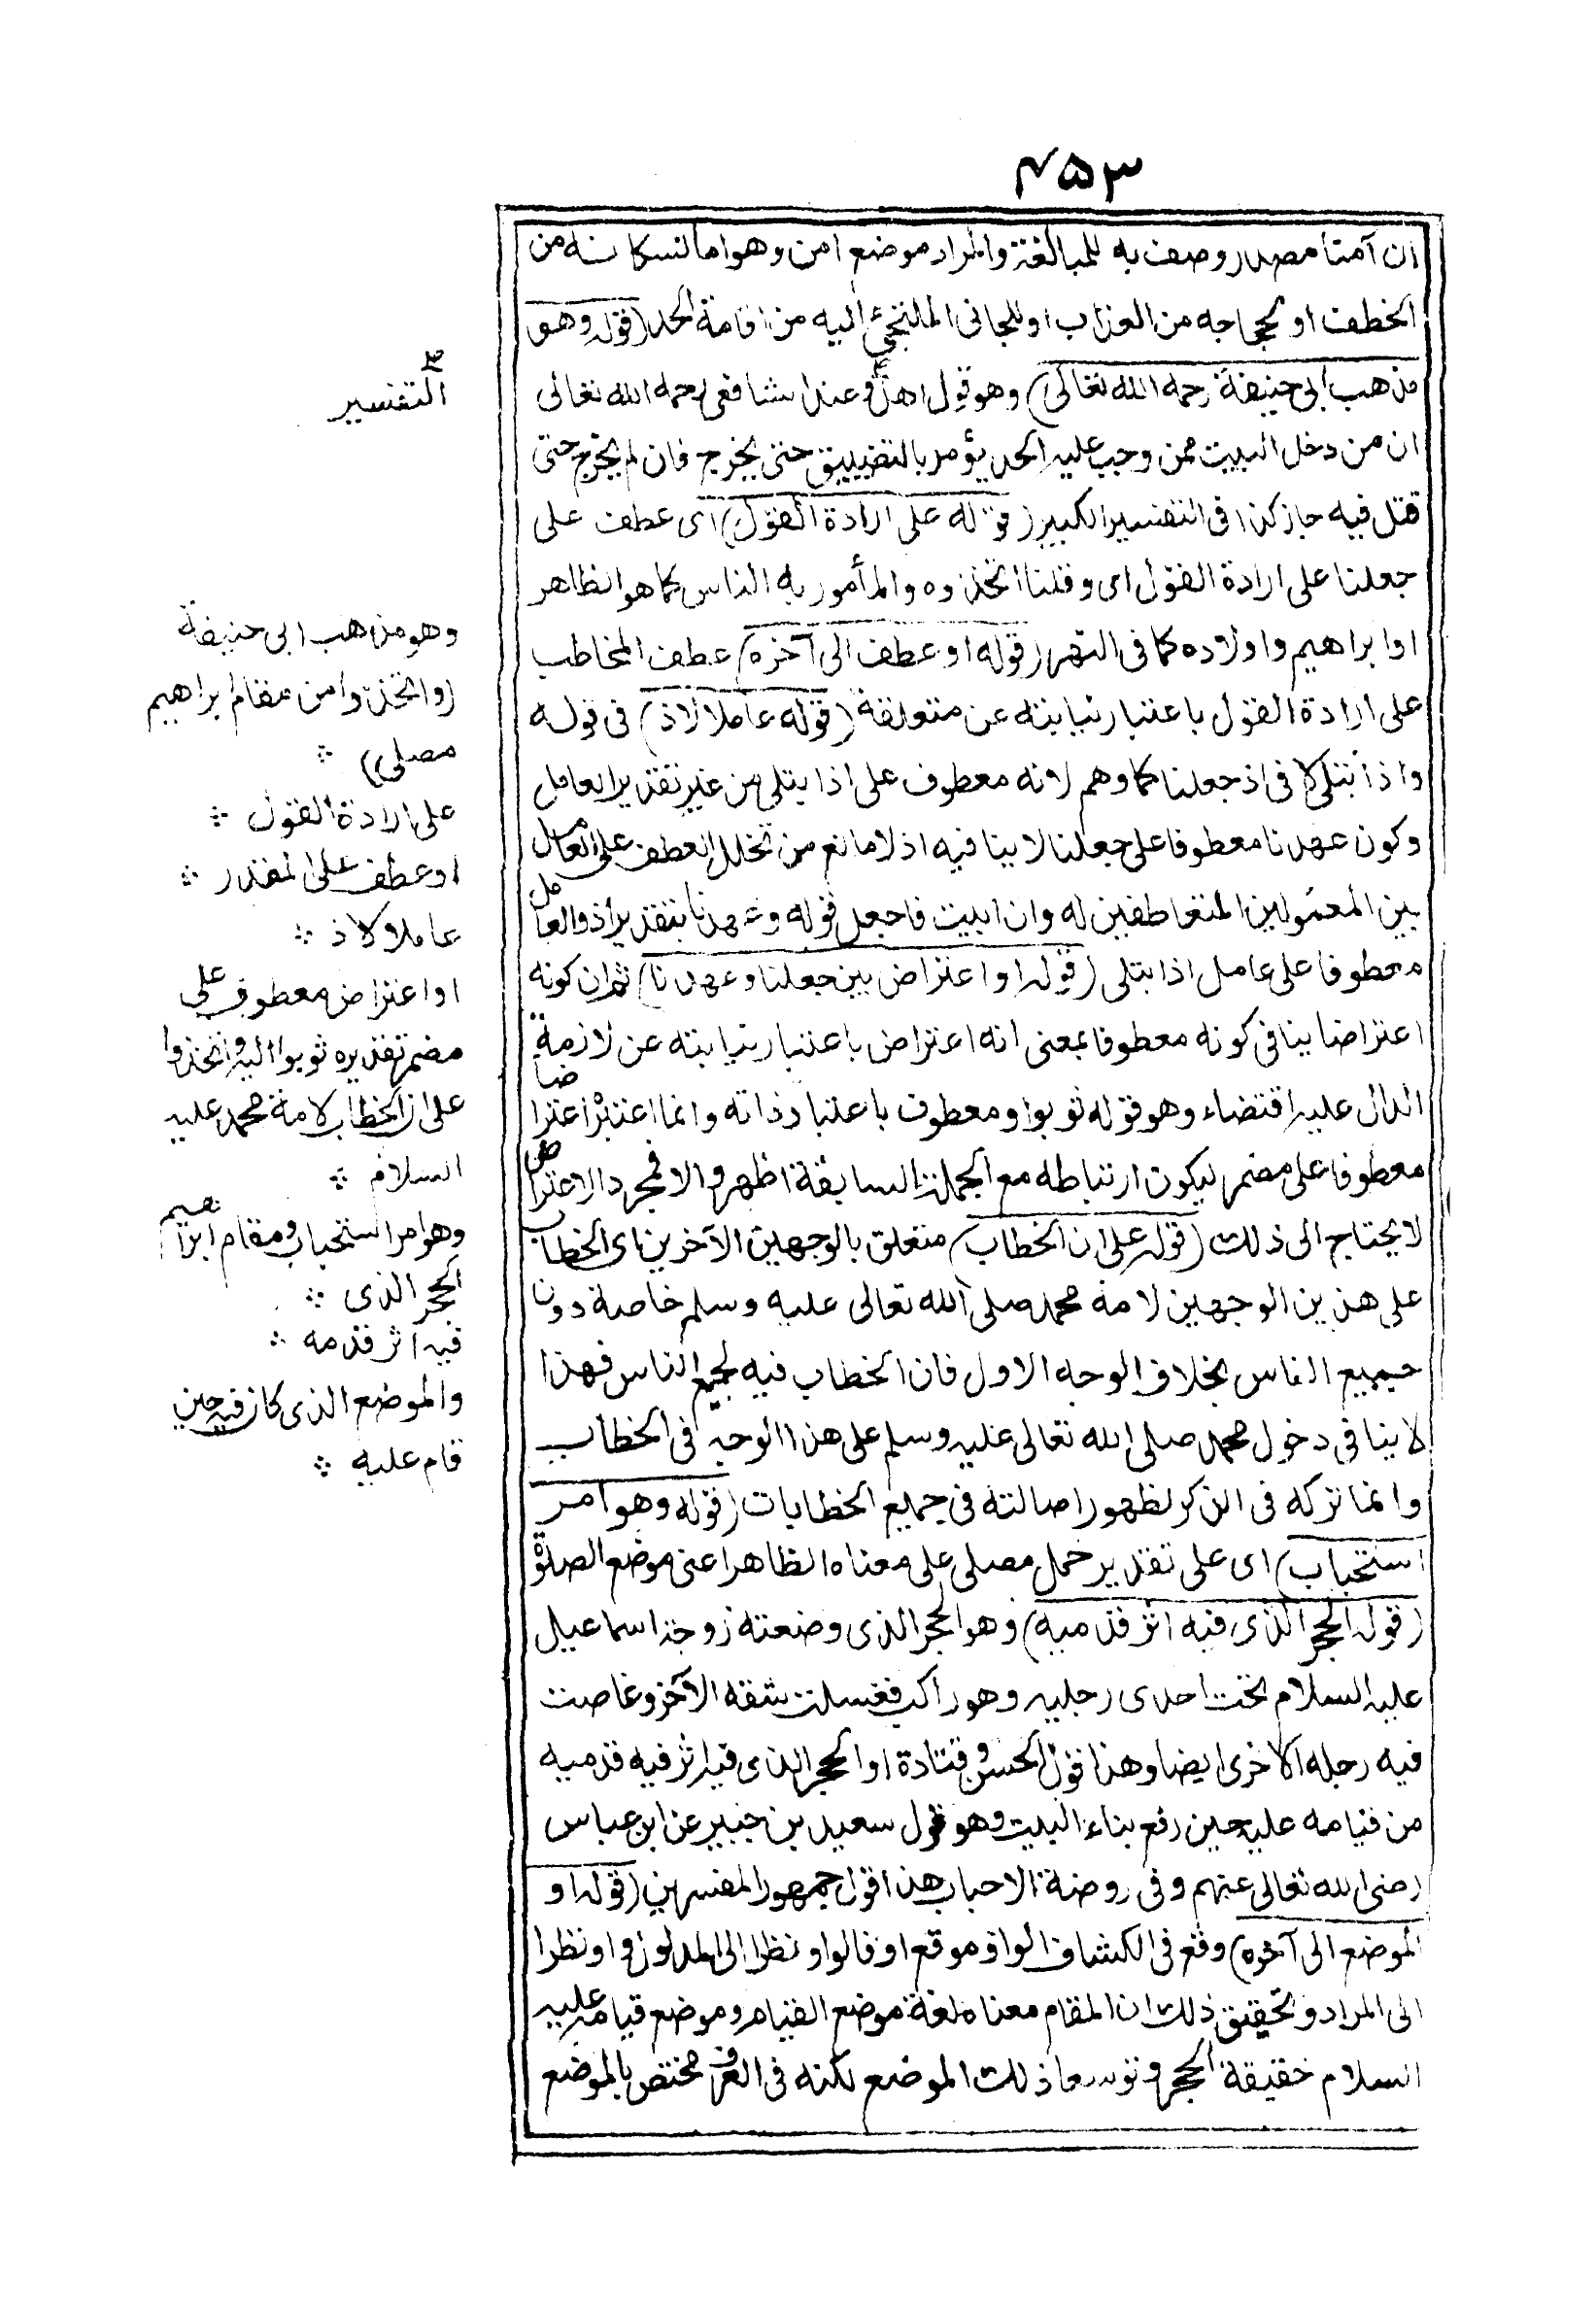 ۴۵۳
ان آمنا مصدر وصف به للمبالغة والمراد موضع امن وهو اما لسكانه من
الخطف او لحجاجه من العذاب او للجاني الملتجئ اليه من اقامة الحد (قوله وهو
مذهب ابي حنيفة رحمه الله تعالى) وهو قول اهل وعند الشافعي رحمه الله تعالى
ان من دخل البيت ممن وجب عليه الحد يؤمر بالتضييق حتى يخرج فان لم يخرج حتى
قتل فيه جاز كذا في التفسير الكبير (قوله على ارادة القول) اى عطف على
جعلنا على ارادة القول اى وقلنا اتخذوه والمأمور به الناس كما هو الظاهر
او ابراهيم واولاده كما في النهر (قوله او عطف الى آخره) عطف المخاطب
على ارادة القول باعتبار نيابته عن متعلقة (قوله عاملا لاذ) في قوله
واذ ابتلى لا في اذ جعلنا كما وهم لانه معطوف على اذا يتلى من غير تقدير العامل
وكون عهدنا معطوفا على جعلنا لا ينافيه اذ لا مانع من تخلل العطف على العامل
بين المعمولين المتعاطفين له وان ابيت فاجعل قوله وعهدنا بتقدير اذ والعامل
معطوفا على عامل اذا بتلى (قوله او اعتراض بين جعلنا وعهدنا) ثم ان كونه
اعتراضا ينافي كونه معطوفا بمعنى انه اعتراض باعتبار نيابته عن لازمة
الدال عليه اقتضاء وهو قوله ثوبوا ومعطوف باعتبار ذاته وانما اعتبر اعتراضا
معطوفا على مضمر ليكون ارتباطه مع الجملة السابقة اظهر والا فمجرد الاعتراض
لا يحتاج الى ذلك (قوله على ان الخطاب) متعلق بالوجهين الآخرين اى الخطاب
على هذين الوجهين لامة محمد صلى الله تعالى عليه وسلم خاصة دون
جميع الناس بخلاف الوجه الاول فان الخطاب فيه لجميع الناس فهذا
لا ينافي دخول محمد صلى الله تعالى عليه وسلم على هذا الوجه في الخطاب
وانما تركه في الذكر لظهور اصالته في جميع الخطابات (قوله وهو امر
استحباب) اى على تقدير حمل مصلى على معناه الظاهر اعنى موضع الصلوة
(قوله الحجر الذى فيه اثر قدميه) وهو الحجر الذى وضعته زوجة اسماعيل
عليه السلام تحت احدى رجليه وهو راكب فغسلت شقه الآخر وغاصت
فيه رجله الاخرى ايضا وهذا قول الحسن وقتادة او الحجر الذى فيه اثر فيه قدميه
من قيامه عليه حين رفع بناء البيت وهو قول سعيد بن جبير عن ابن عباس
رضى الله تعالى عنهم وفي روضة الاحباب هذا قول جمهور المفسرين (قوله او
الموضع الى آخره) وقع في الكشاف الواو موقع او فالواو نظرا الى المدلول واو نظرا
الى المراد وتحقيق ذلك ان المقام معناه لغة موضع القيام وموضع قيامه عليه
السلام حقيقة الحجر وتوسعا ذلك الموضع لكنه في العرف مختص بالموضع
التفسير
وهو مذهب ابى حنيفة
(واتخذوا من مقام ابراهيم
مصلى))
على ارادة القول
او عطف على المقدر
عاملا لاذ
او اعتراض معطوف على
مضمر تقديره ثوبوا اليه واتخذوا
على ان الخطاب لامة محمد عليه
السلام
وهو امر استحباب ومقام ابراهيم
الحجر الذى
فيه اثر قدمه
والموضع الذى كان فيه حين
قام عليه